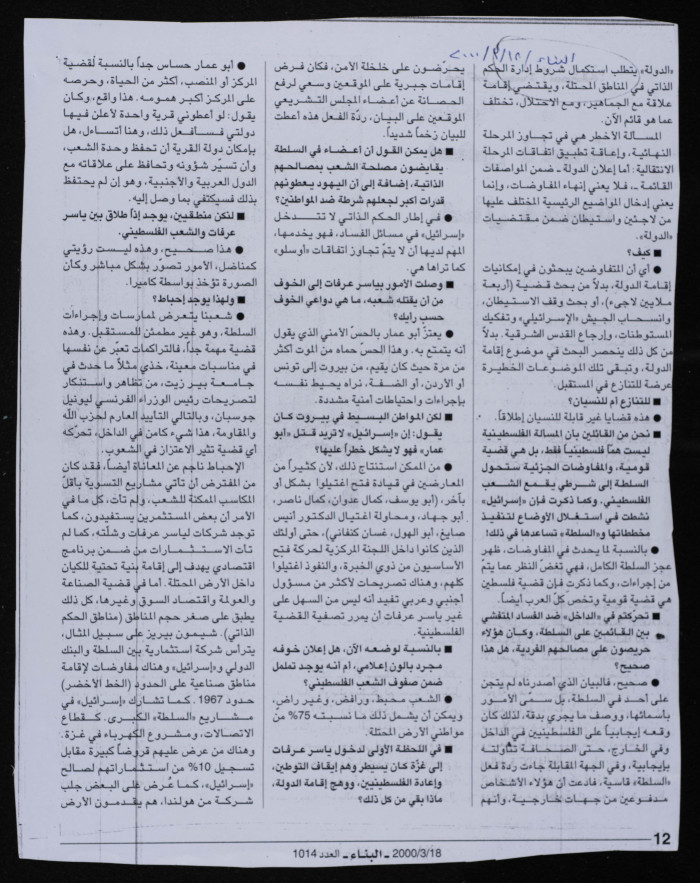 البناء ٢٠٠٠/٣/١٨
«الدولة» يتطلب استكمال شروط إدارة الحكم
الذاتي في المناطق المحتلة، ويقتضي إقامة
علاقة مع الجماهير، ومع الاحتلال، تختلف
عما هو قائم الآن.
المسألة الأخطر هي في تجاوز المرحلة
النهائية، وإعاقة تطبيق اتفاقات المرحلة
الانتقالية: أما إعلان الدولة ـ ضمن المواصفات
القائمة ـ، فلا يعني إنهاء المفاوضات، وإنما
يعني إدخال المواضيع الرئيسية المختلف عليها
من لاجئين واستيطان ضمن مقتضيات
«الدولة».
■ كيف؟
● أي أن المتفاوضين يبحثون في إمكانيات
إقامة الدولة، بدلاً من بحث قضية (أربعة
ملايين لاجىء)، أو بحث وقف الاستيطان،
وانسحاب الجيش «الإسرائيلي» وتفكيك
المستوطنات، وإرجاع القدس الشرقية. بدلاً
من كل ذلك ينحصر البحث في موضوع إقامة
الدولة، وتبقى تلك الموضوعات الخطيرة
عرضة للتنازع في المستقبل.
■ للتنازع أم للنسيان؟
● هذه قضايا غير قابلة للنسيان إطلاقاً.
■ نحن من القائلين بأن المسألة الفلسطينية
ليست همّاً فلسطينياً فقط، بل هي قضية
قومية، والمفاوضات الجزئية ستحول
السلطة إلى شرطي يقمع الشعب
الفلسطيني، وكما ذكرت فإن «إسرائيل»
نشطت في استغلال الأوضاع لتنفيذ
مخططاتها و«السلطة» تساعدها في ذلك!
● بالنسبة لما يحدث في المفاوضات، ظهر
عجز السلطة الكامل، فهي تغض النظر عما يتم
من إجراءات، وكما ذكرت فإن قضية فلسطين
هي قضية قومية وتخص كل العرب أيضاً.
■ تحركتم في «الداخل» ضد الفساد المتفشي
بين القائمين على السلطة، وكأن هؤلاء
حريصون على مصالحهم الفردية، هل هذا
صحيح؟
● صحيح، فالبيان الذي أصدرناه لم يتجن
على أحد في السلطة، بل سمّى الأمور
بأسمائها، ووصف ما يجري بدقة، لذلك كان
وقعه إيجابياً على الفلسطينيين في الداخل
وفي الخارج، حتى الصحافة تناولته
بإيجابية، وفي الجهة المقابلة جاءت ردة فعل
«السلطة» قاسية، فادعت أن هؤلاء الأشخاص
مدفوعين من جهات خارجية، وأنهم
يحرّضون على خلخلة الأمن، فكان فرض
إقامات جبرية على الموقعين وسعي لرفع
الحصانة عن أعضاء المجلس التشريعي
الموقعين على البيان، ردّة الفعل هذه أعطت
للبيان زخماً شديداً.
■ هل يمكن القول أن أعضاء في السلطة
يقايضون مصلحة الشعب بمصالحهم
الذاتية، إضافة إلى أن اليهود يعطونهم
قدرات أكبر لجعلهم شرطة ضد المواطنين؟
● في إطار الحكم الذاتي لا تتدخل
«إسرائيل» في مسائل الفساد، فهو يخدمها،
المهم لديها أن لا يتمّ تجاوز اتفاقات «أوسلو»
كما تراها هي.
■ وصلت الأمور بياسر عرفات إلى الخوف
من أن يقتله شعبه، ما هي دواعي الخوف
حسب رأيك؟
● يعتزّ أبو عمار بالحسّ الأمني الذي يقول
أنه يتمتع به. وهذا الحسّ حماه من الموت أكثر
من مرة حيث كان يقيم، من بيروت إلى تونس
أو الأردن، أو الضفة، نراه يحيط نفسه
بإجراءات واحتياطات أمنية مشددة.
■ لكن المواطن البسيط في بيروت كان
يقول: إن «إسرائيل» لا تريد قتل «أبو
عمار» فهو لا يشكل خطراً عليها؟
● من الممكن استنتاج ذلك، لأن كثيراً من
المعارضين في قيادة فتح اغتيلوا بشكل أو
بآخر، (أبو يوسف، كمال عدوان، كمال ناصر،
أبو جهاد، ومحاولة اغتيال الدكتور أنيس
صايغ، أبو الهول، غسان كنفاني)، حتى أولئك
الذين كانوا داخل اللجنة المركزية لحركة فتح
الأساسيون من ذوي الخبرة، والنفوذ اغتيلوا
كلهم، وهناك تصريحات لأكثر من مسؤول
أجنبي وعربي تفيد أنه ليس من السهل على
غير ياسر عرفات أن يمرر تصفية القضية
الفلسطينية.
■ بالنسبة لوضعه الآن، هل إعلان خوفه
مجرد بالون إعلامي، ام انه يوجد تململ
ضمن صفوف الشعب الفلسطيني؟
● الشعب محبط، ورافض، وغير راض،
ويمكن أن يشمل ذلك ما نسبته 75% من
مواطني الأرض المحتلة.
■ في اللحظة الأولى لدخول ياسر عرفات
إلى غزّة كان يسيطر وهم إيقاف التوطين،
وإعادة الفلسطينيين، ووهج إقامة الدولة،
ماذا بقي من كل ذلك؟
● أبو عمار حساس جداً بالنسبة لقضية
المركز أو المنصب، أكثر من الحياة، وحرصه
على المركز أكبر همومه. هذا واقع، وكان
يقول: لو أعطوني قرية واحدة لأعلن فيها
دولتي فسأفعل ذلك، وهنا أتساءل، هل
بإمكان دولة القرية أن تحفظ وحدة الشعب،
وأن تسيّر شؤونه وتحافظ على علاقاته مع
الدول العربية والأجنبية، وهو إن لم يحتفظ
بذلك فسيكتفي بما وصل إليه.
■ لنكن منطقيين، يوجد إذاً طلاق بين ياسر
عرفات والشعب الفلسطيني.
● هذا صحيح، وهذه ليست رؤيتي
كمناضل، الأمور تصوّر بشكل مباشر وكأن
الصورة تؤخذ بواسطة كاميرا.
■ ولهذا يوجد إحباط؟
● شعبنا يتعرض لممارسات وإجراءات
السلطة، وهو غير مطمئن للمستقبل. وهذه
قضية مهمة جداً، فالتراكمات تعبّر عن نفسها
في مناسبات معينة، خذي مثلاً ما حدث في
جامعة بير زيت، من تظاهر واستنكار
لتصريحات رئيس الوزراء الفرنسي ليونيل
جوسبان، وبالتالي التأييد العارم لحزب الله
والمقاومة، هذا شيء كامن في الداخل، تحركه
أي قضية تثير الاعتزاز في الشعوب.
الإحباط ناجم عن المعاناة أيضاً، فقد كان
من المفترض أن تأتي مشاريع التسوية بأقلّ
المكاسب الممكنة للشعب، ولم تأت، كل ما في
الأمر أن بعض المستثمرين يستفيدون، كما
توجد شركات لياسر عرفات وشلّته، كما لم
تأت الاستثمارات من ضمن برنامج
اقتصادي يهدف إلى إقامة بنية تحتية للكيان
داخل الأرض المحتلة. أما في قضية الصناعة
والعولمة واقتصاد السوق وغيرها، كل ذلك
يطبق على صغر حجم المناطق (مناطق الحكم
الذاتي). شيمون بيريز على سبيل المثال،
يترأس شركة استثمارية بين السلطة والبنك
الدولي و«إسرائيل» وهناك مفاوضات لإقامة
مناطق صناعية على الحدود (الخط الأخضر)
حدود 1967. كما تشارك «إسرائيل» في
مشاريع «السلطة» الكبرى، كقطاع
الاتصالات، ومشروع الكهرباء في غزة.
وهناك من عرض عليهم قروضاً كبيرة مقابل
تسجيل 10% من استثماراتهم لصالح
«إسرائيل»، كما عُرض على البعض جلب
شركة من هولندا، هم يقدمون الأرض
12
2000/3/18 ـ البناء ـ العدد 1014